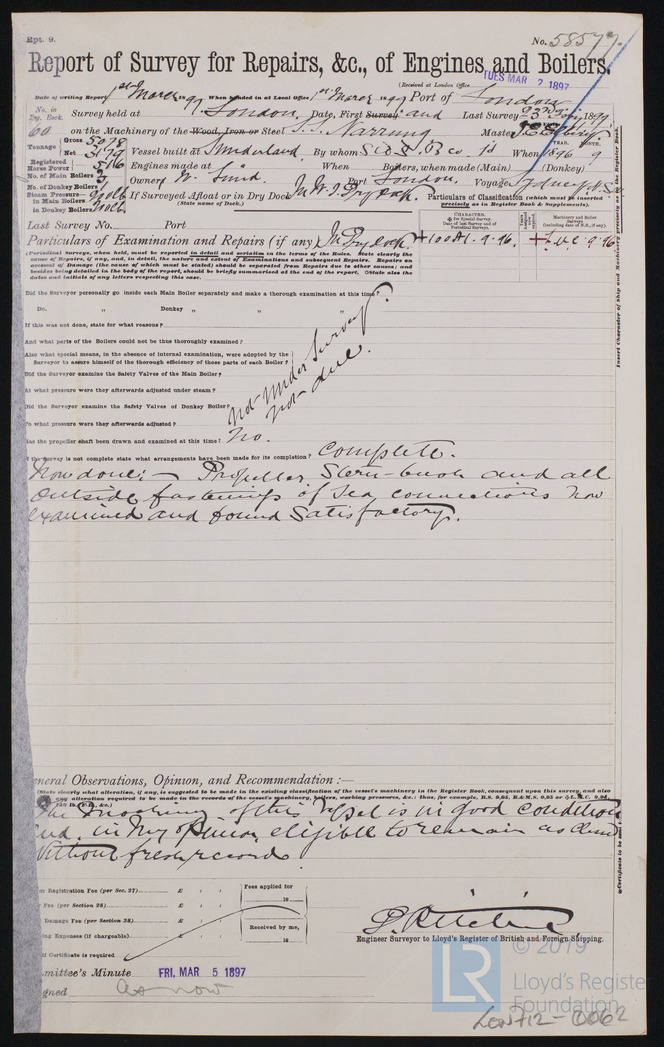 Rpt. 9.
No. 58577.
Report of Survey for Repairs, &c., of Engines and Boilers.
(Received at London Office
TUES MAR 2 1897
Date of writing Report 1st March 1897 When handed in at Local Office 1st March 1897 Port of London
No. in Reg. Book. Survey held at London Date, First Survey and Last Survey 23rd 1897
60 on the Machinery of the Wood, Iron or Steel S.S. Narrung Master
Tonnage Gross 5078 Net 3179 Vessel built at Sunderland By whom S.B. Co. Ld When 1896 9
YEAR. MONTH.
Registered Horse Power 576 Engines made at When Boilers, when made (Main) (Donkey)
No. of Main Boilers 3 Owners W. Lund Port London Voyage Sydney
No. of Donkey Boilers
Steam Pressure in Main Boilers If Surveyed Afloat or in Dry Dock Dry Dock
(State name of Dock.)
in Donkey Boilers
Particulars of Classification (which must be inserted precisely as in Register Book & Supplements).
Last Survey No. Port
CHARACTER.
Machinery and Boiler Surveys
Particulars of Examination and Repairs (if any) In Dry Dock +100A1. 9.96. +LMC 9.96
(Periodical Surveys, when held, must be reported in detail and seriatim in the terms of the Rules. State clearly the
name of Repairs, if any, and, in detail, the nature and extent of Examinations and subsequent Repairs. Repairs on
account of Damage (the cause of which must be stated) should be separated from Repairs due to other causes; and
besides being detailed in the body of the report, should be briefly summarised at the end of the report. State also the
dates and initials of any letters respecting this case.
Insert Character of Ship and Machinery precisely as in the Register Book.
Did the Surveyor personally go inside each Main Boiler separately and make a thorough examination at this time?
Do. „ Donkey „ „ „
If this was not done, state for what reasons?
And what parts of the Boilers could not be thus thoroughly examined?
Also what special means, in the absence of internal examination, were adopted by the
Surveyor to assure himself of the thorough efficiency of those parts of each Boiler?
Did the Surveyor examine the Safety Valves of the Main Boiler?
At what pressure were they afterwards adjusted under steam?
Did the Surveyor examine the Safety Valves of Donkey Boiler?
To what pressure were they afterwards adjusted?
not under survey
not due.
Has the propeller shaft been drawn and examined at this time? No.
If the survey is not complete state what arrangements have been made for its completion? Complete.
Now done:- Propeller, Stern-bush and all
outside fastenings of sea connections now
examined and found satisfactory.
General Observations, Opinion, and Recommendation:—
(State clearly what alteration, if any, is suggested to be made in the existing classification of the vessel's machinery in the Register Book, consequent upon this survey, and also
any alteration required to be made in the records of the vessel's machinery, boilers, working pressures, &c.: thus, for example, B.S. 9,95, B.&M.S. 9,95 or L.M.C. 9,94,
The machinery of this vessel is in good condition
and in my opinion eligible to remain as classed
without fresh record
Registration Fee (per Sec. 27) £ : :
Fee (per Section 28) £ : :
Damage Fee (per Section 28) £ : :
Expenses (if chargeable) £ : :
Fees applied for
18
Received by me,
18
If Certificate is required
Engineer Surveyor to Lloyd's Register of British and Foreign Shipping.
Committee's Minute FRI. MAR 5 1897
as now
© 2019
LR
Lloyd's Register
Foundation
LON712-0062